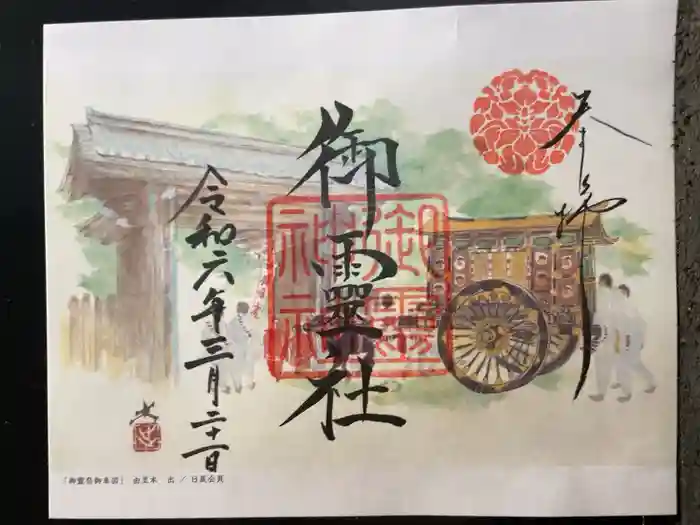 奉拝
御靈社
御靈
神社
令和六年三月二十一日
「御靈祭御車図」 由里本 出 / 日展会員